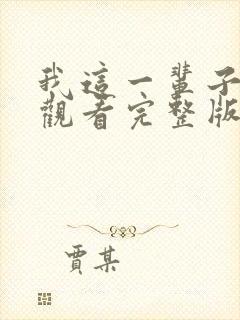 我這一輩子
觀看完整版
賈某